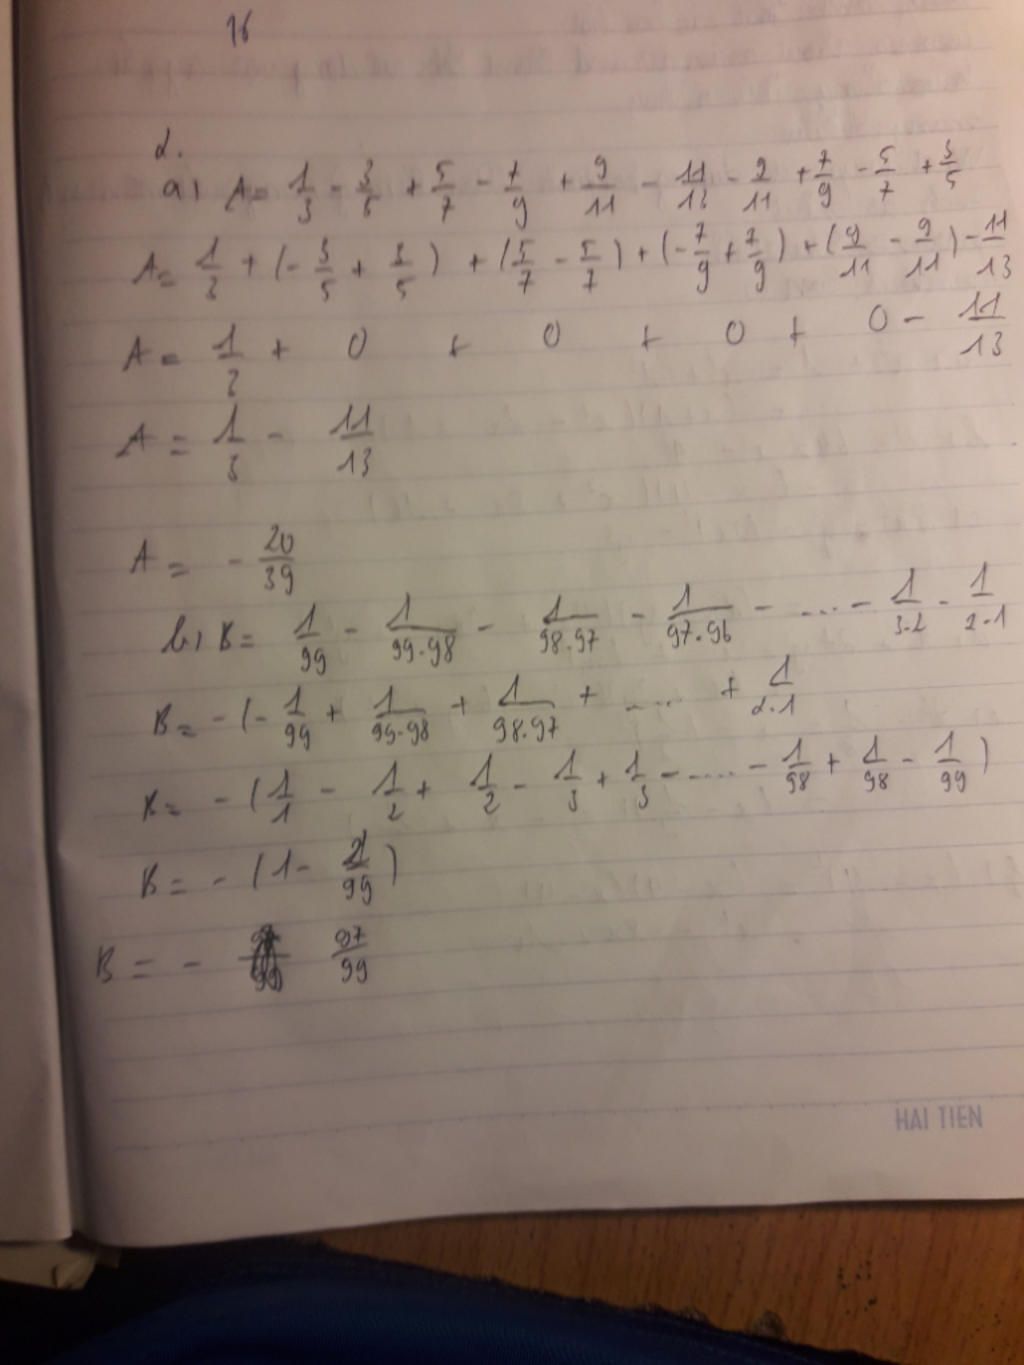 16
2.
a) A = 1/3 - 3/5 + 5/7 - 7/9 + 9/11 - 11/13 - 9/11 + 7/9 - 5/7 + 3/5
A = 1/3 + (- 3/5 + 3/5) + (5/7 - 5/7) + (- 7/9 + 7/9) + (9/11 - 9/11) - 11/13
A = 1/3 + 0 + 0 + 0 + 0 - 11/13
A = 1/3 - 11/13
A = - 20/39
b) B = 1/99 - 1/99.98 - 1/98.97 - 1/97.96 - .... - 1/3.2 - 1/2.1
B = - (- 1/99 + 1/99.98 + 1/98.97 + .... + 1/2.1
B = - (1/1 - 1/2 + 1/2 - 1/3 + 1/3 - .... - 1/98 + 1/98 - 1/99)
B = - (1 - 2/99)
B = - 97/99
HAI TIEN